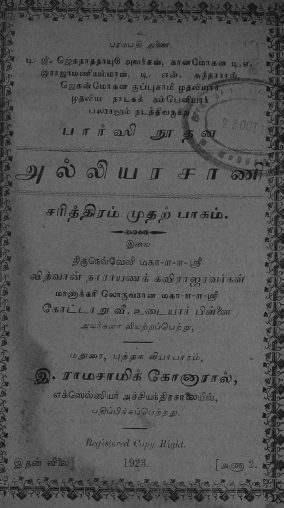 உ
பரமபதி துணை.
டி. ஜி. ஜெகநாதநாயுடு அவர்கள், கானமோகன டி. எ.
ராஜாமணியம்மாள், டி. என். சுந்தரராவ்
ஜெகன்மோகன குப்புசாமி முதலியார்
முதலிய நாடகக் கம்பெனியார்
பலராலும் நடத்திவருகிற
பார்ஸி நூதன
அல்லியரசாணி
சரித்திரம் முதற் பாகம்.
இவை
திருநெல்வேலி மகா-ள-ள-ஸ்ரீ
வித்வான் நாராயணக் கவிராஜரவர்கள்
மாணாக்கரி லொருவரான மகா-ள-ள-ஸ்ரீ
கோட்டாறு வீ. உடையார் பிள்ளை
அவர்களா லியற்றப்பெற்று,
மதுரை, புத்தக வியாபாரம்,
இ. ராமசாமிக் கோனாரால்,
எக்ஸெல்ஸியர் அச்சியந்திரசாலையில்,
பதிப்பிக்கப்பெற்றது.
Registered Copy Right.
இதன் விலை] 1923. [அணா 2.